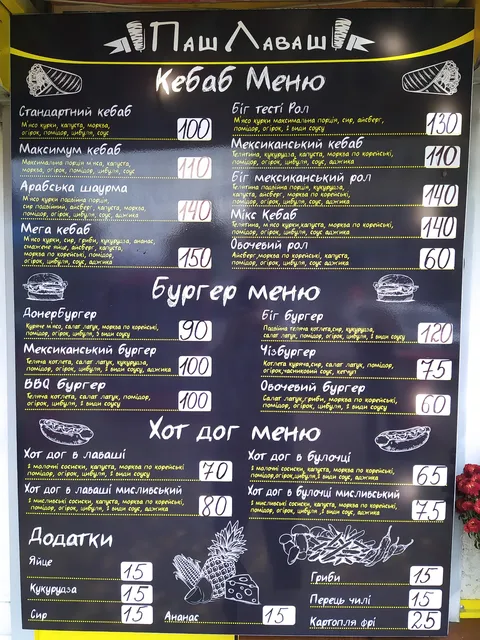 Паш Лаваш
Кебаб Меню
Стандартний кебаб
М'ясо курки, капуста, морква,
огірок, помідор, цибуля, соус
100
Максимум кебаб
Максимальна порція м'яса, капуста,
морква, огірок, помідор, цибуля, соус
110
Арабська шаурма
М'ясо курки подвійна порція,
сир подвійний, айсберг, капуста, морква,
помідор, огірок, цибуля, соус, аджика
140
Мега кебаб
М'ясо курки, сир, гриби, кукурудза, ананас,
смажене яйце, айсберг, капуста,
морква по корейськи, помідор,
огірок, цибуля, соус, аджика
150
Біг тесті Рол
М'ясо курки максимальна порція, сир, айсберг,
помідор, огірок, 3 види соусу
130
Мексиканський кебаб
Телятина, кукурудза, капуста, морква по корейськи,
помідор, огірок, цибуля, соус, аджика
110
Біг мексиканський рол
Телятина подвійна порція, кукурудза,
капуста, айсберг, морква по корейськи,
помідор, огірок, цибуля, соус, аджика
140
Мікс Кебаб
Телятина, м'ясо курки, капуста, морква по корейськи,
помідор, огірок, цибуля, соус, аджика
140
Овочевий рол
Айсберг, морква по корейськи, капуста,
помідор, огірок, цибуля, соус, аджика
60
Бургер меню
Донербургер
Куряче м'ясо, салат латук, морква по корейськи,
помідор, огірок, цибуля, 3 види соусу
90
Мексиканський бургер
Теляча котлета, салат латук, кукурудза,
помідор, огірок, цибуля, 3 види соусу, аджика
100
BBQ бургер
Теляча котлета, салат латук, помідор,
огірок, цибуля, 3 види соусу
100
Біг бургер
Подвійна теляча котлета, сир, кукурудза,
салат латук, помідор, огірок, цибуля, 3 види соусу
120
Чізбургер
Котлета куряча, сир, салат латук, помідор,
огірок, часниковий соус, кетчуп
75
Овочевий бургер
Салат латук, гриби, морква по корейськи,
помідор, огірок, цибуля, 3 види соусу
60
Хот дог меню
Хот дог в лаваші
2 молочні сосиски, капуста, морква по корейськи,
помідор, огірок, цибуля, 3 види соусу
70
Хот дог в лаваші мисливський
2 мисливські сосиски, капуста, морква по корейськи,
помідор, огірок, цибуля, 3 види соусу, аджика
80
Хот дог в булочці
2 молочні сосиски, капуста, морква по корейськи,
помідор, огірок, цибуля, 3 види соусу, аджика
65
Хот дог в булочці мисливський
2 мисливські сосиски, капуста, морква по корейськи,
помідор, огірок, цибуля, 3 види соусу, аджика
75
Додатки
Яйце
15
Кукурудза
15
Сир
15
Ананас
15
Гриби
15
Перець чилі
15
Картопля фрі
25